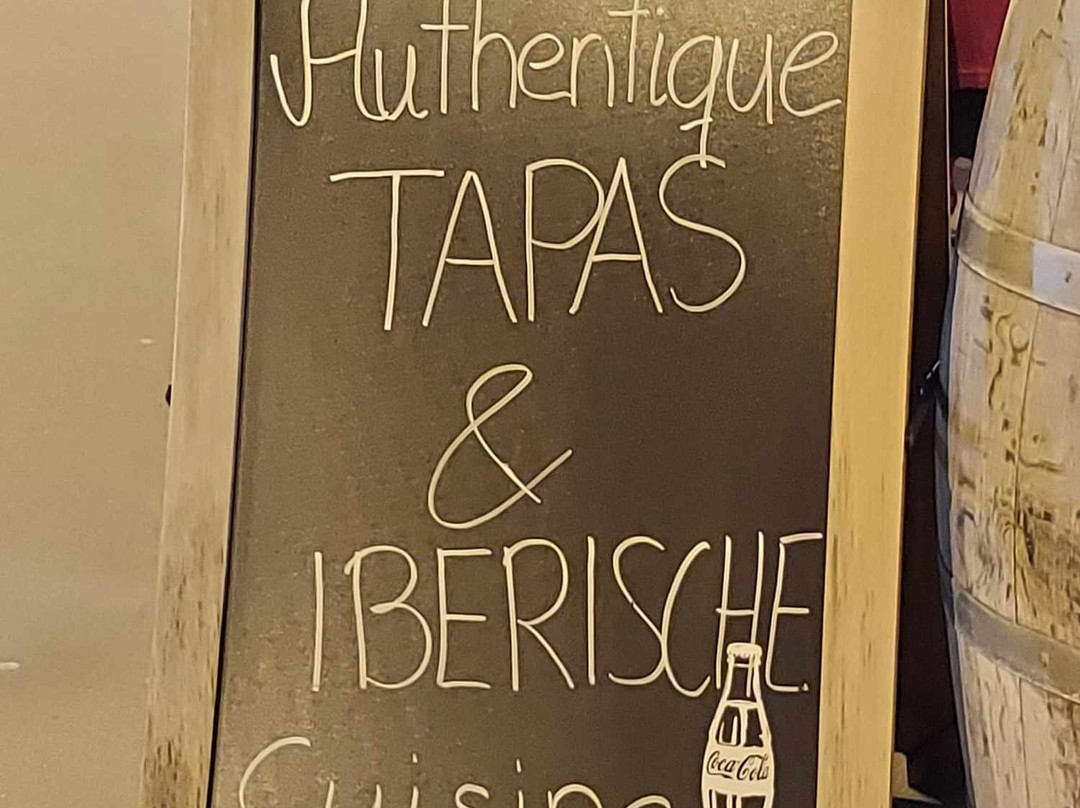 Authentique
TAPAS
&
IBERISCHE
Cuisine
Coca-Cola